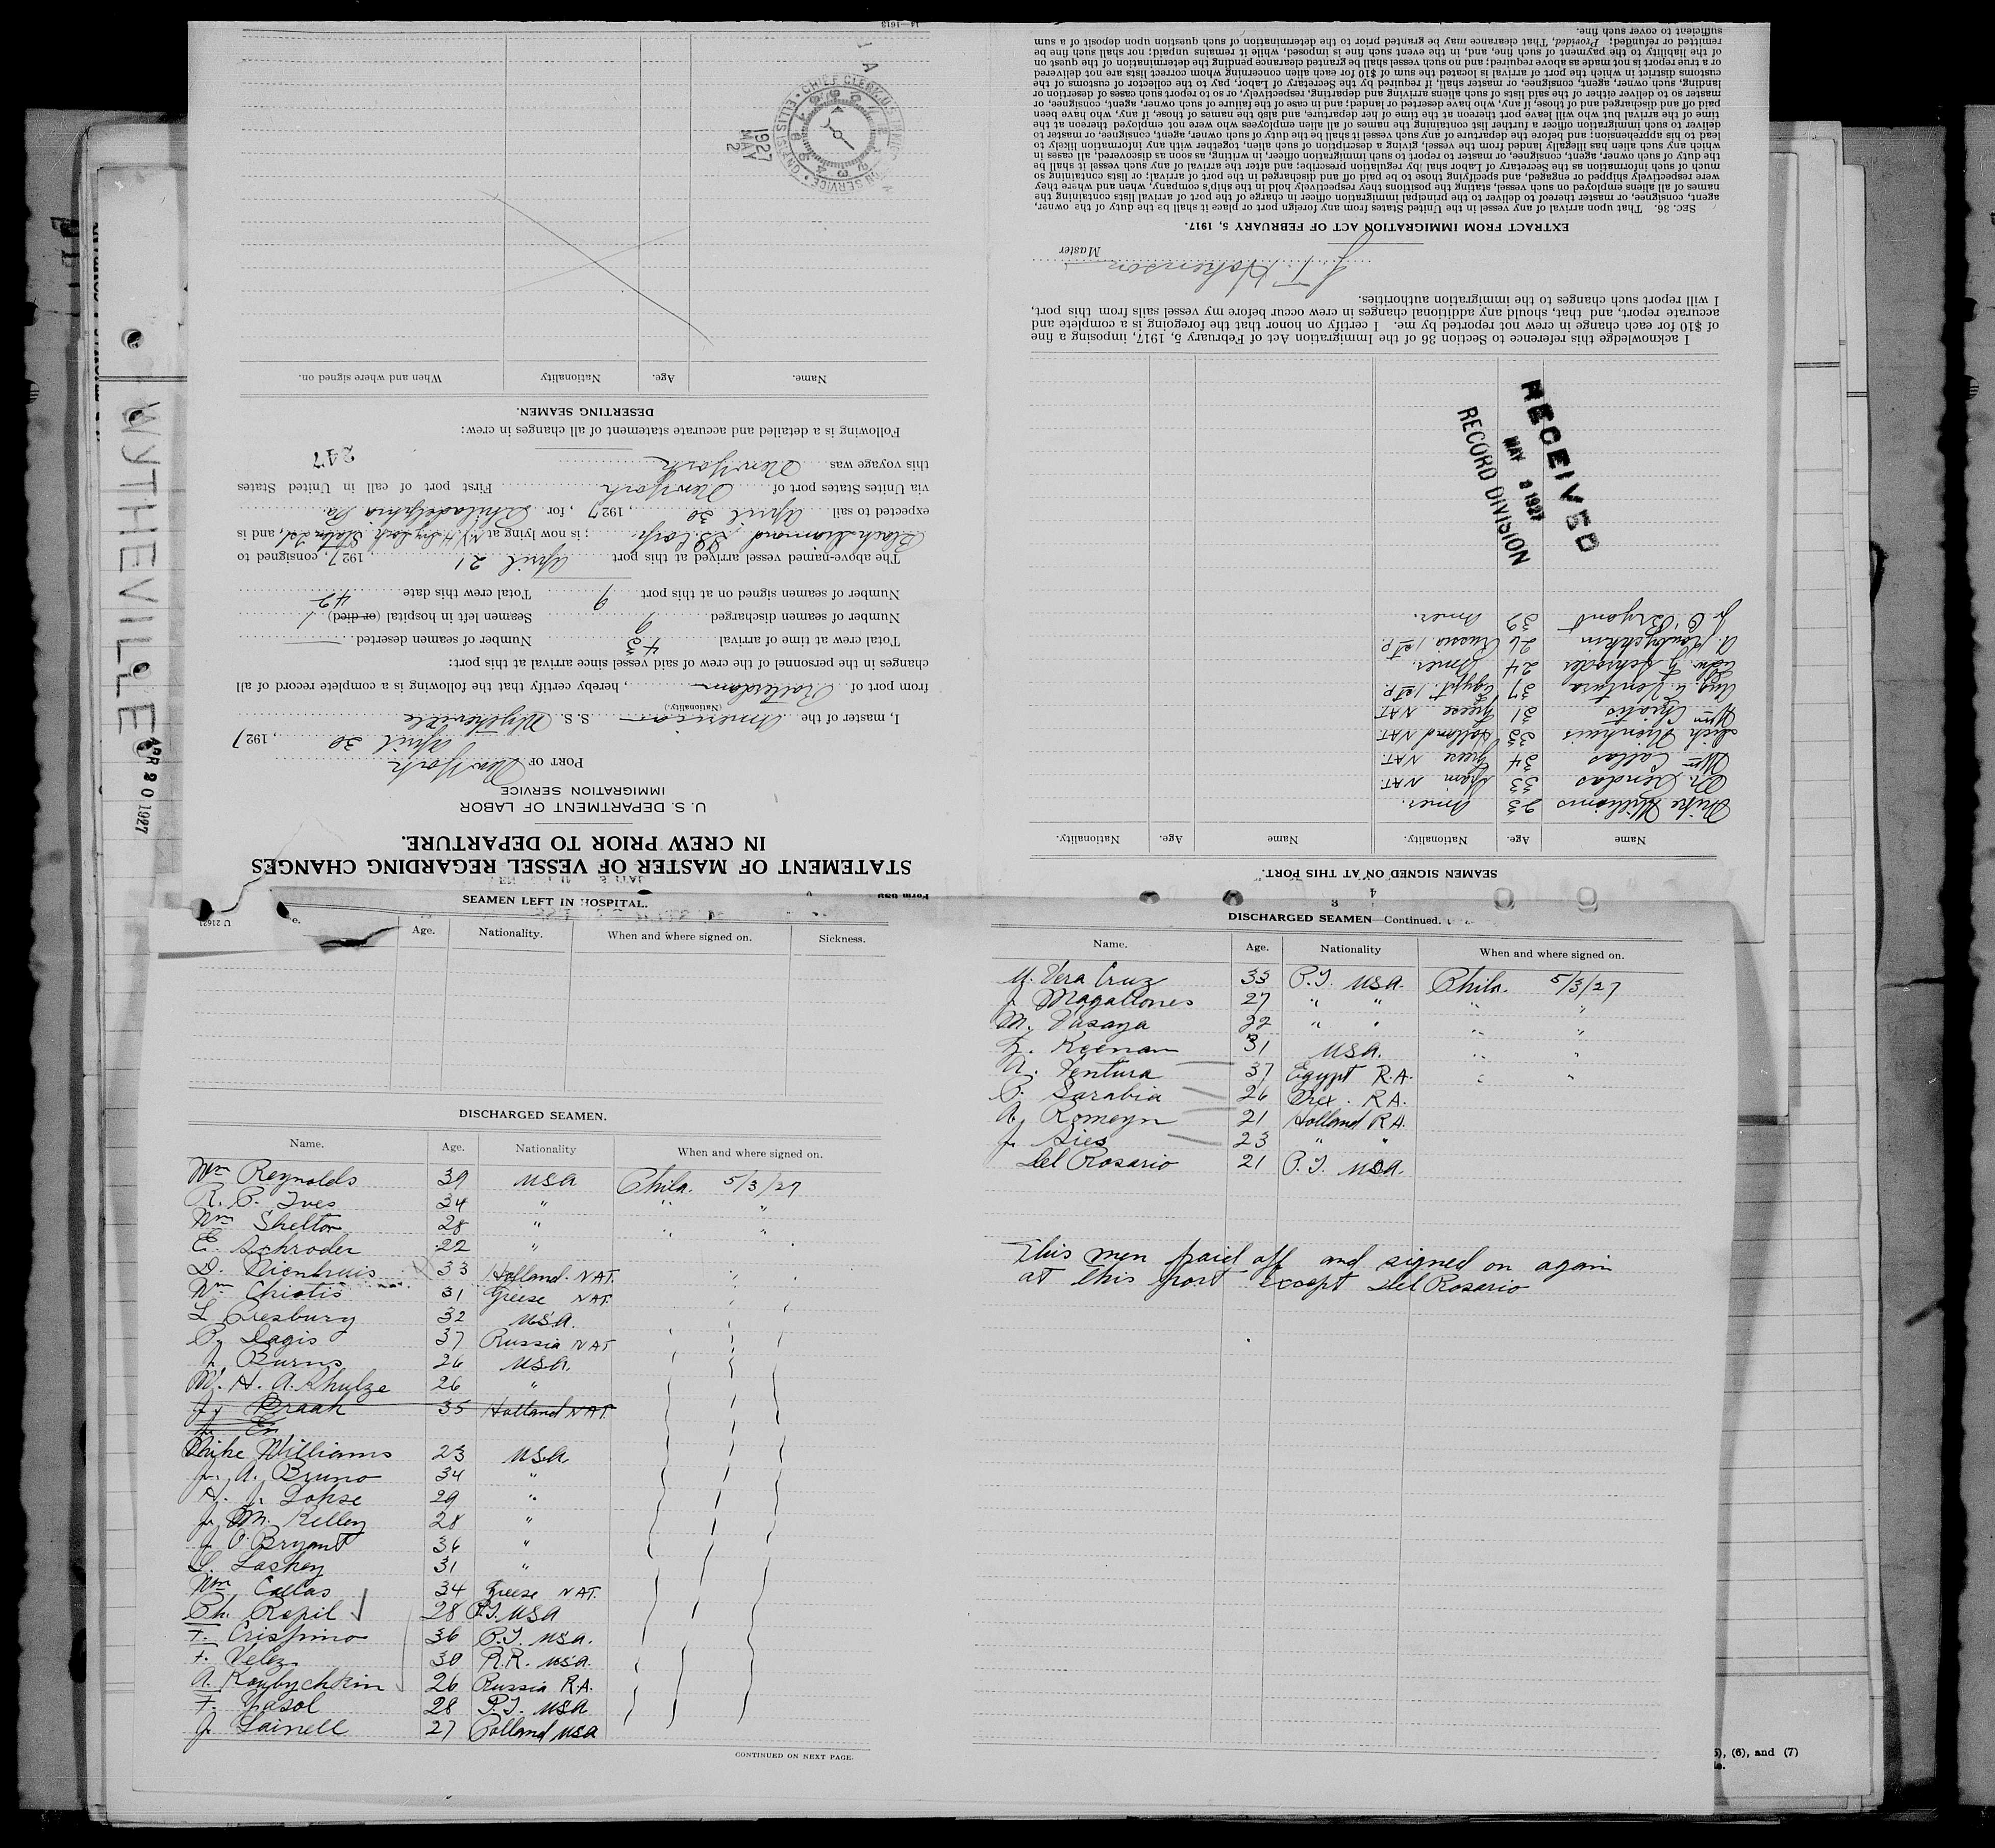 WYTHEVILLE
APR 20 1927
STATEMENT OF MASTER OF VESSEL REGARDING CHANGES
IN CREW PRIOR TO DEPARTURE.
U. S. DEPARTMENT OF LABOR
IMMIGRATION SERVICE
PORT OF New York
April 30, 1927
I, master of the American S. S. Wytheville
(Nationality.)
from port of Rotterdam, hereby certify that the following is a complete record of all
changes in the personnel of the crew of said vessel since arrival at this port:
Total crew at time of arrival 43 Number of seamen deserted —
Number of seamen discharged 9 Seamen left in hospital (or died) 1
Number of seamen signed on at this port 9 Total crew this date 42
The above-named vessel arrived at this port April 21, 1927, consigned to
Black Diamond SS. Corp.; is now lying at Dry Dock Staten Isl, and is
expected to sail April 30, 1927, for Philadelphia Pa.
via Unites States port of New York First port of call in United States
this voyage was New York
247
Following is a detailed and accurate statement of all changes in crew:
DESERTING SEAMEN.
Name. Age. Nationality When and where signed on.
CHIEF CLERK'S
ELLIS
1927
MAY
2
14—1613
SEAMEN SIGNED ON AT THIS PORT.
Name Age. Nationality. Name Age. Nationality.
Mike Williams 23 Amer.
33 Spain NAT.
Wm Callas 34 Greese NAT.
Nienhuis 33 Holland NAT.
Wm Chiotis 31 Greese NAT
Aug. A. Ventura 37 Egypt. 1st P.
Edw. F. Schroder 24 Amer.
A. Koubychkin 26 Russia 1st P.
J. O'Bryant 39 Amer.
RECEIVED
MAY 2 1927
RECORD DIVISION
I acknowledge this reference to Section 36 of the Immigration Act of February 5, 1917, imposing a fine
of $10 for each change in crew not reported by me. I certify on honor that the foregoing is a complete and
accurate report, and that, should any additional changes in crew occur before my vessel sails from this port,
I will report such changes to the immigration authorities.
Master
EXTRACT FROM IMMIGRATION ACT OF FEBRUARY 5, 1917.
SEC. 36. That upon arrival of any vessel in the United States from any foreign port or place it shall be the duty of the owner,
agent, consignee, or master thereof to deliver to the principal immigration officer in charge of the port of arrival lists containing the
names of all aliens employed on such vessel, stating the positions they respectively hold in the ship's company, when and where they
were respectively shipped or engaged, and specifying those to be paid off and discharged in the port of arrival; or lists containing so
much of such information as the Secretary of Labor shall by regulation prescribe; and after the arrival of any such vessel it shall be
the duty of such owner, agent, consignee, or master to report to such immigration officer, in writing, as soon as discovered, all cases in
which any such alien has illegally landed from the vessel, giving a description of such alien, together with any information likely to
lead to his apprehension; and before the departure of any such vessel it shall be the duty of such owner, agent, consignee, or master to
deliver to such immigration officer a further list containing the names of all alien employees who were not employed thereon at the
time of the arrival but who will leave port thereon at the time of her departure, and also the names of those, if any, who have been
paid off and discharged and of those, if any, who have deserted or landed; and in case of the failure of such owner, agent, consignee, or
master so to deliver either of the said lists of such aliens arriving and departing, respectively, or so to report such cases of desertion or
landing, such owner, agent, consignee, or master shall, if required by the Secretary of Labor, pay to the collector of customs of the
customs district in which the port of arrival is located the sum of $10 for each alien concerning whom correct lists are not delivered
or a true report is not made as above required; and no such vessel shall be granted clearance pending the determination of the quest on
of the liability to the payment of such fine, and, in the event such fine is imposed, while it remains unpaid; nor shall such fine be
remitted or refunded; Provided, That clearance may be granted prior to the determination of such question upon deposit of a sum
sufficient to cover such fine.
SEAMEN LEFT IN HOSPITAL.
Age. Nationality. When and where signed on. Sickness.
DISCHARGED SEAMEN.
Name. Age. Nationality When and where signed on.
Wm Reynolds 39 USA Phila. 5/3/27
R. P. Ives 34 " " "
Wm Shelton 28 " " "
E. Schroder 22 "
D. Nienhuis 33 Holland. NAT.
Wm Chiotis 31 Greese NAT.
L. Presbury 32 USA.
P. Dagis 37 Russia NAT
J. Burns 26 USA.
M. H. A. Khulze 26 "
J. Braak 35 Holland NAT.
Mike Williams 23 USA
J. A. Bruno 34 "
H. J. Lohse 29 "
J. M. Kelley 28 "
J. O'Bryant 36 "
L. Laskey 31 "
Wm Callas 34 Greese NAT.
Ph. Rapil 28 P.I. USA
F. Crispino 36 P.I. USA.
F. Velez 30 P.R. USA.
A. Koubychkin 26 Russia R.A.
F. Yasol 28 P.I. USA
J. Lainell 27 Polland USA
CONTINUED ON NEXT PAGE.
DISCHARGED SEAMEN—Continued.
Name. Age. Nationality When and where signed on.
M. Vera Cruz 33 P.I. USA. Phila. 5/3/27
J. Magallones 27 " " " "
M. Vasaya 22 " " " "
F. Keenan 31 USA. " "
A. Ventura 37 Egypt R.A. " "
P. Sarabia 26 Mex. R.A.
A. Romeyn 21 Holland R.A.
J. Sies 23 " "
Del Rosario 21 P.I. USA.
This men paid off and signed on again
at this port except Del Rosario
5), (6), and (7)